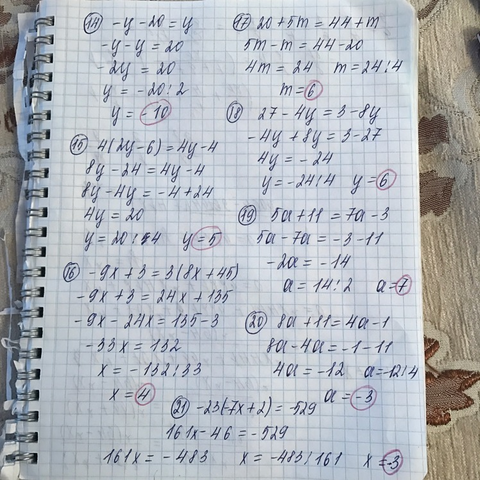 14) -y-20=y
-y-y=20
-2y=20
y=-20:2
y=-10
15) 4(2y-6)=4y-4
8y-24=4y-4
8y-4y=-4+24
4y=20
y=20:4 y=5
16) -9x+3=3(8x+45)
-9x+3=24x+135
-9x-24x=135-3
-33x=132
x=-132:33
x=4
17) 20+5m=44+m
5m-m=44-20
4m=24 m=24:4
m=6
18) 27-4y=3-8y
-4y+8y=3-27
4y=-24
y=-24:4 y=6
19) 5a+11=7a-3
5a-7a=-3-11
-2a=-14
a=14:2 a=7
20) 8a+11=4a-1
8a-4a=-1-11
4a=-12 a=12:4
a=-3
21) -23(-7x+2)=-529
161x-46=-529
161x=-483 x=-483:161 x=-3